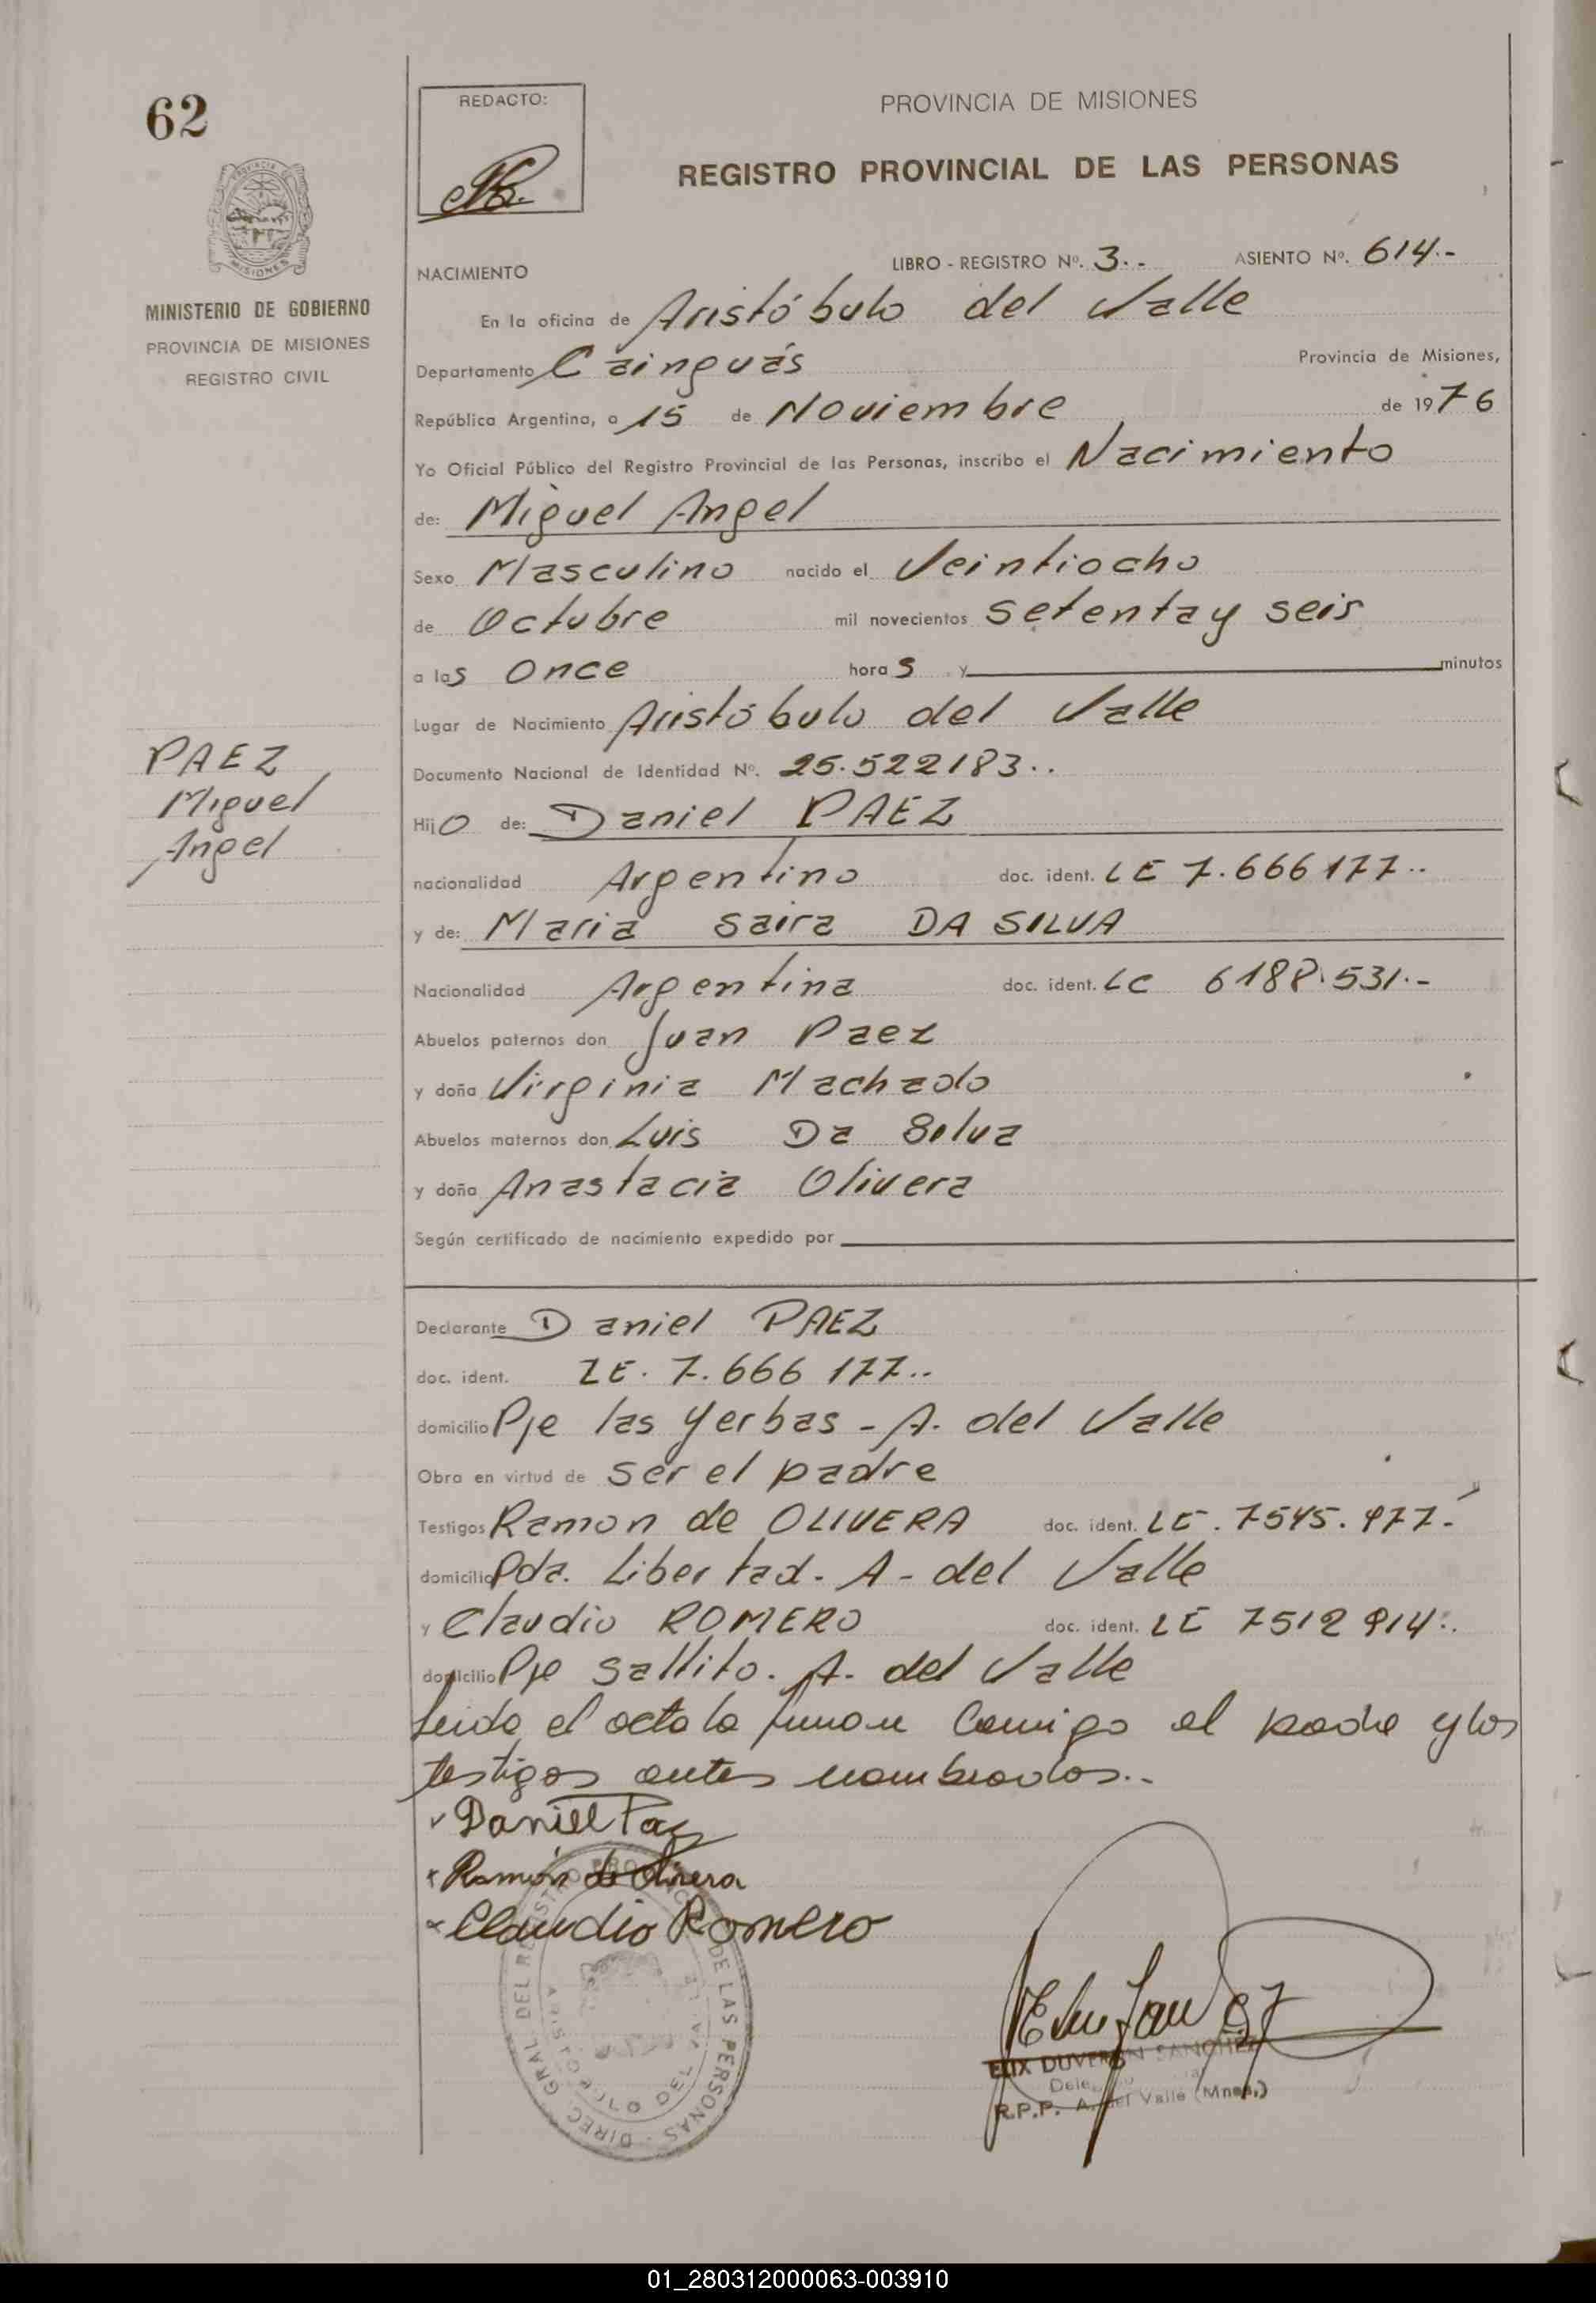 62
REDACTO:
PROVINCIA DE MISIONES
REGISTRO PROVINCIAL DE LAS PERSONAS
PROVINCIA DE
MISIONES
MINISTERIO DE GOBIERNO
PROVINCIA DE MISIONES
REGISTRO CIVIL
NACIMIENTO LIBRO - REGISTRO Nº. 3.- ASIENTO Nº. 614.-
En la oficina de Aristóbulo del Valle
Departamento Cainguás Provincia de Misiones,
República Argentina, a 15 de Noviembre de 1976
Yo Oficial Público del Registro Provincial de las Personas, inscribo el Nacimiento
de: Miguel Angel
Sexo Masculino nacido el Veintiocho
de Octubre mil novecientos setenta y seis
a las Once horas y minutos
Lugar de Nacimiento Aristóbulo del Valle
PAEZ
Miguel
Angel
Documento Nacional de Identidad Nº. 25.522183..
Hijo de: Daniel PAEZ
nacionalidad Argentino doc. ident. LE 7.666177..
y de: Maria Saira DA SILVA
Nacionalidad Argentina doc. ident. LC 6188.531.-
Abuelos paternos don Juan Paez
y doña Virginia Machado
Abuelos maternos don Luis Da Silva
y doña Anastacia Olivera
Según certificado de nacimiento expedido por
Declarante Daniel PAEZ
doc. ident. LE. 7.666 177..
domicilio Pje las Yerbas - A. del Valle
Obra en virtud de ser el padre
Testigos Ramon de OLIVERA doc. ident. LE. 7545.977.-
domicilio Pda. Libertad. A- del Valle
y Claudio ROMERO doc. ident. LE 7512914..
domicilio Pje Saltito. A. del Valle
Leida el acta la firman comigo el padre y los
testigos antes nombrados..-
Daniel Paez
Ramón de Olivera
Claudio Romero
DIREC. GRAL DEL REGISTRO PROVINCIAL DE LAS PERSONAS
ARISTOBULO DEL VALLE
ELIX DUVERON SANCHEZ
R.P.P. A. del Valle (Mnes.)
01_280312000063-003910